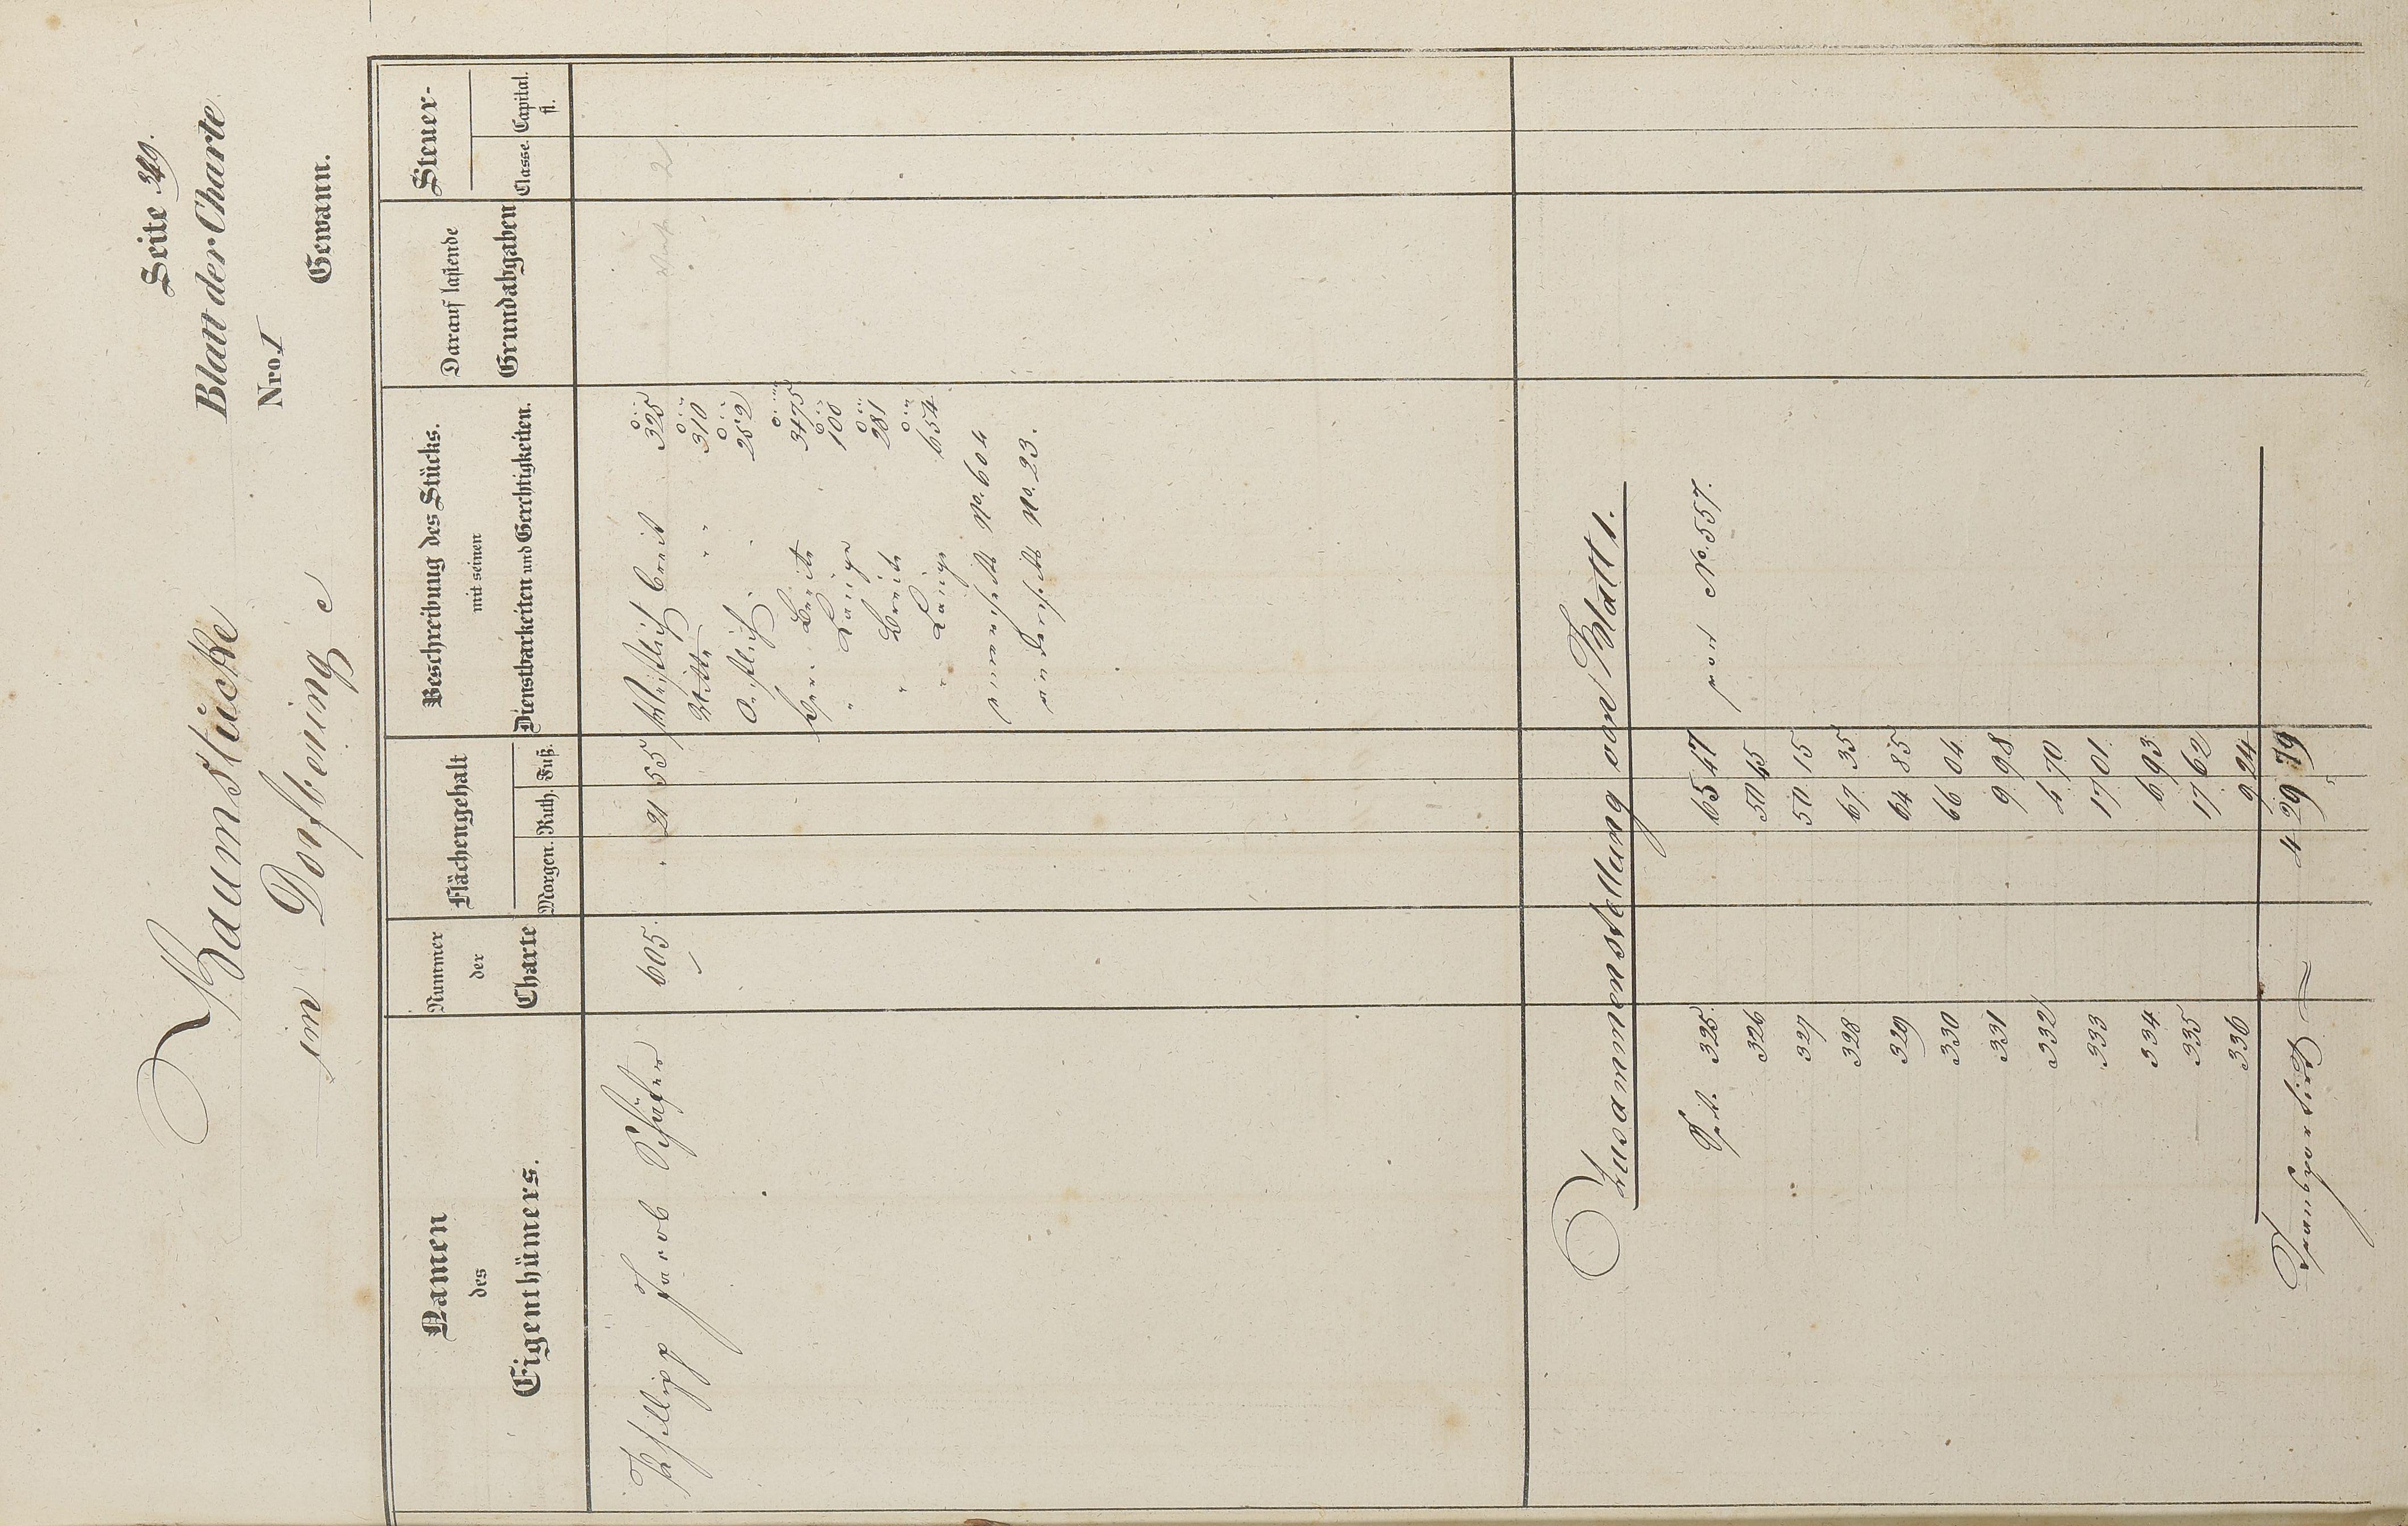 Seite 349.
Baumstücke
Blatt der Charte
im Dorfbering e
Nro. I
Gewann.
Namen
des
Eigenthümers.
Nummer
der
Charte
Flächengehalt
Morgen. Ruth. Fuß.
Beschreibung des Stücks.
mit seinen
Dienstbarkeiten und Gerechtigkeiten.
Darauf lastende
Grundabgaben
Steuer-
Classe. Capital.
fl.
Phillipp Jacob Schäfer 605. . 21 55 Westlich breit 325
Mitte " " 310
Oestlich " " 252
Gem. Breite 3475
" Länge 100
" Breite 281
" Länge 654
einerseits No. 604
anderseits No. 23.
Zusammenstellung von Blatt 1.
Pet. 325. 65 47 von No. 557.
326 50 45
327 50 15
328 67 35
329 64 85
330 66 04
331 9 98
332 4 70
333 17 01
334 6 93
335 17 62
336 9 24
Transportirt 4 29 79